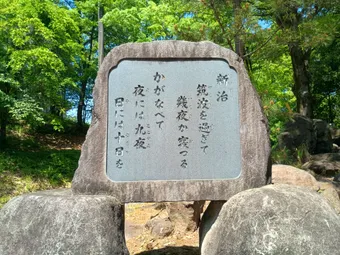 新治
筑波を過ぎて
幾夜か寝つる
かがなべて
夜には九夜
日には十日を